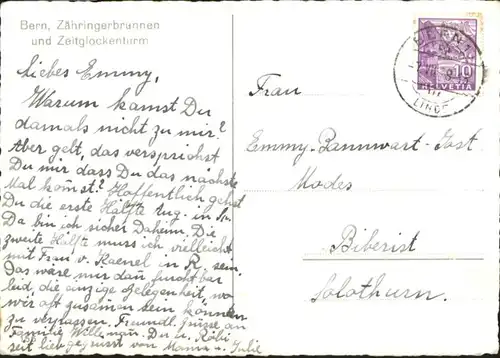 Bern, Zähringerbrunnen
und Zeitglockenturm
Liebes Emmy,
Warum kamst Du
damals nicht zu mir?
Aber gelt, das versprichst
Du mir dass Du das nächste
Mal kom̄st? Hoffentlich gehst
Du die erste Hälfte Aug. in
Da bin ich sicher Daheim. Die
zweite Hälfte muss ich vielleicht
mit Frau v. Kaenel in R. sein.
Das wäre mir dan̄ furchtbar
leid, die einzige Gelegenheit, wo
wir oft zusamen sein können
zu verpassen. Freundl. Grüsse an
Familie Du u. Röbi
seit lieb gegrüsst von
BERN 1
10
HELVETIA
Frau
Emmy Bannwart-Jost
Modes
Biberist
Solothurn.